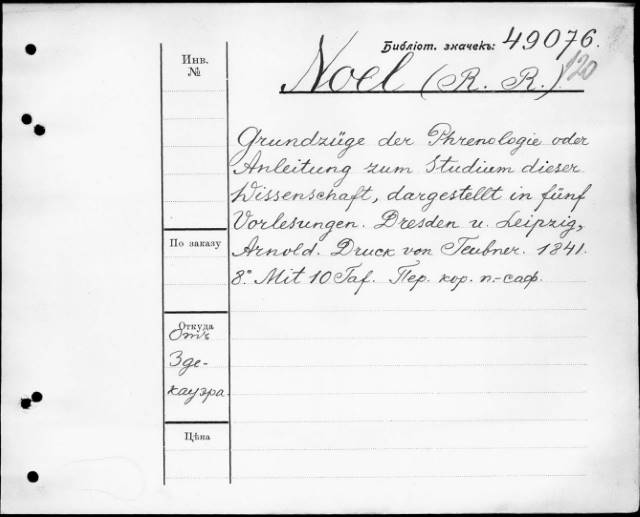 Библіот. значекъ: 49076.
120
Инв. №
Noel (R. R.)
Grundzüge der Phrenologie oder
Anleitung zum Studium dieser
Wissenschaft, dargestellt in fünf
Vorlesungen. Dresden u. Leipzig,
Arnold. Druck von Teubner. 1841.
8.° Mit 10 Taf. Пер. кор. п.-саф.
По заказу
Откуда
Отъ
Зде-
кауэра.
Цѣна